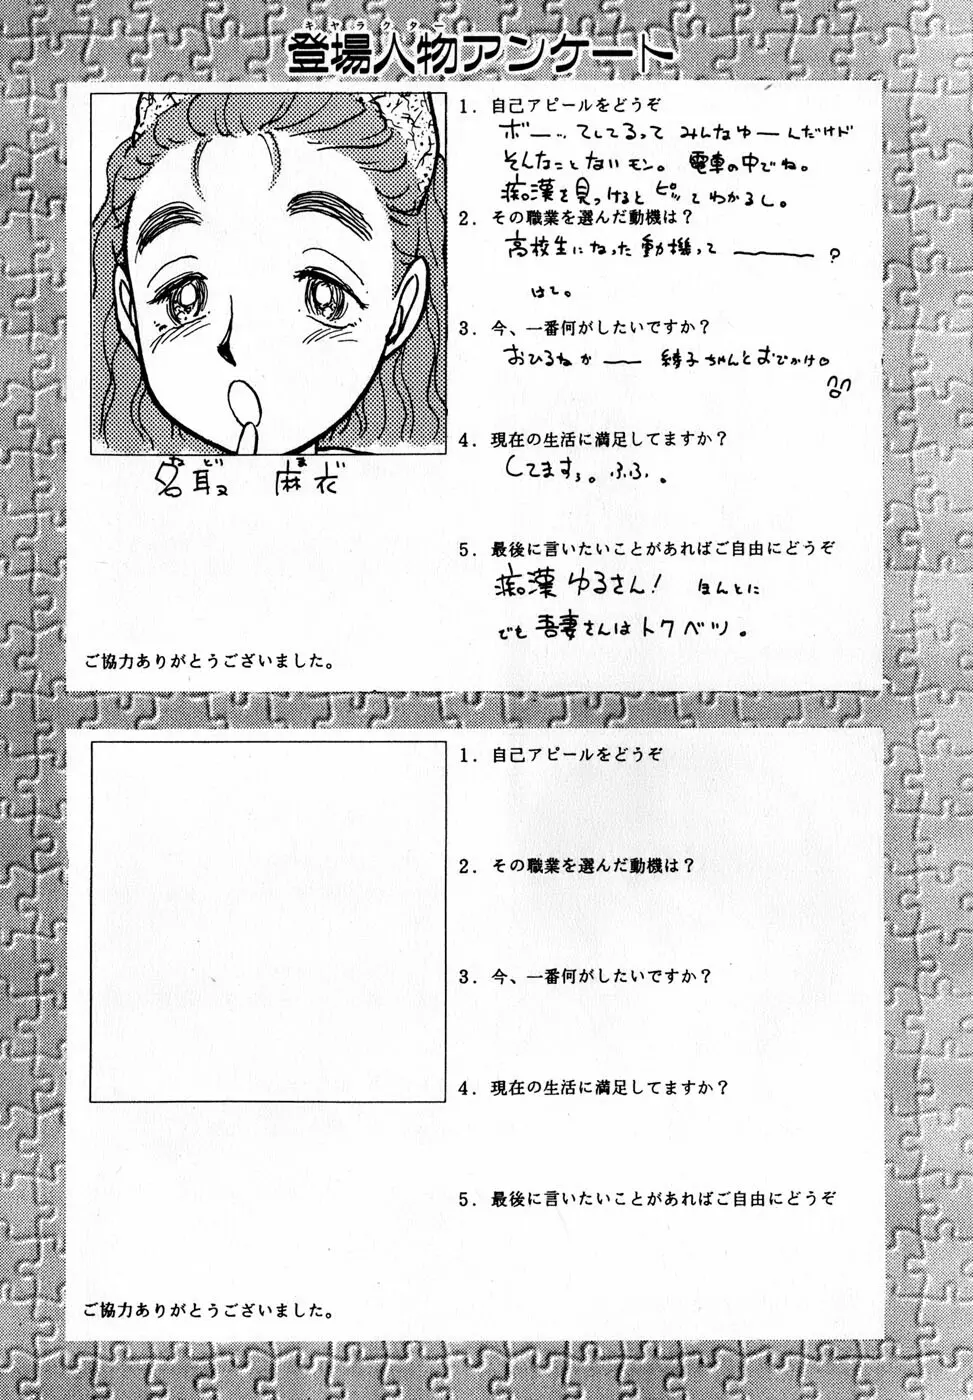 キャラクター
登場人物アンケート
1. 自己アピールをどうぞ
ボー…てしてるって みんなゆーんだけド
そんなことないモン。 電車の中でね。
痴漢を見つけるとピッてわかるし。
2. その職業を選んだ動機は?
高校生になった動機って ――― ?
はて。
3. 今、一番何がしたいですか?
おひるねか ―― 綾子ちゃんとおでかけ♡
4. 現在の生活に満足してますか?
してます。ふふ。
5. 最後に言いたいことがあればご自由にどうぞ
痴漢ゆるさん! ほんとに
でも吾妻さんはトクベツ。
などり ま い
名取 麻衣
ご協力ありがとうございました。
1. 自己アピールをどうぞ
2. その職業を選んだ動機は?
3. 今、一番何がしたいですか?
4. 現在の生活に満足してますか?
5. 最後に言いたいことがあればご自由にどうぞ
ご協力ありがとうございました。